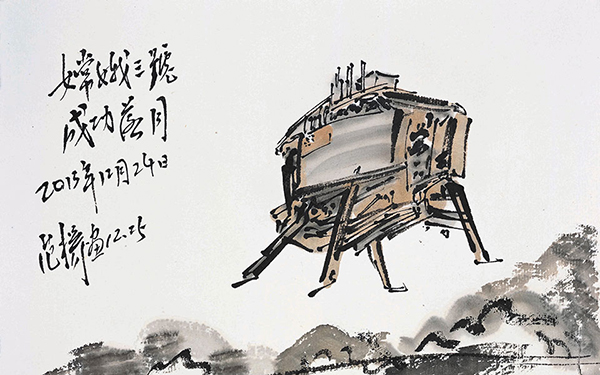 嫦娥三號
成功落月
2013年12月24日
范揚畫12.25